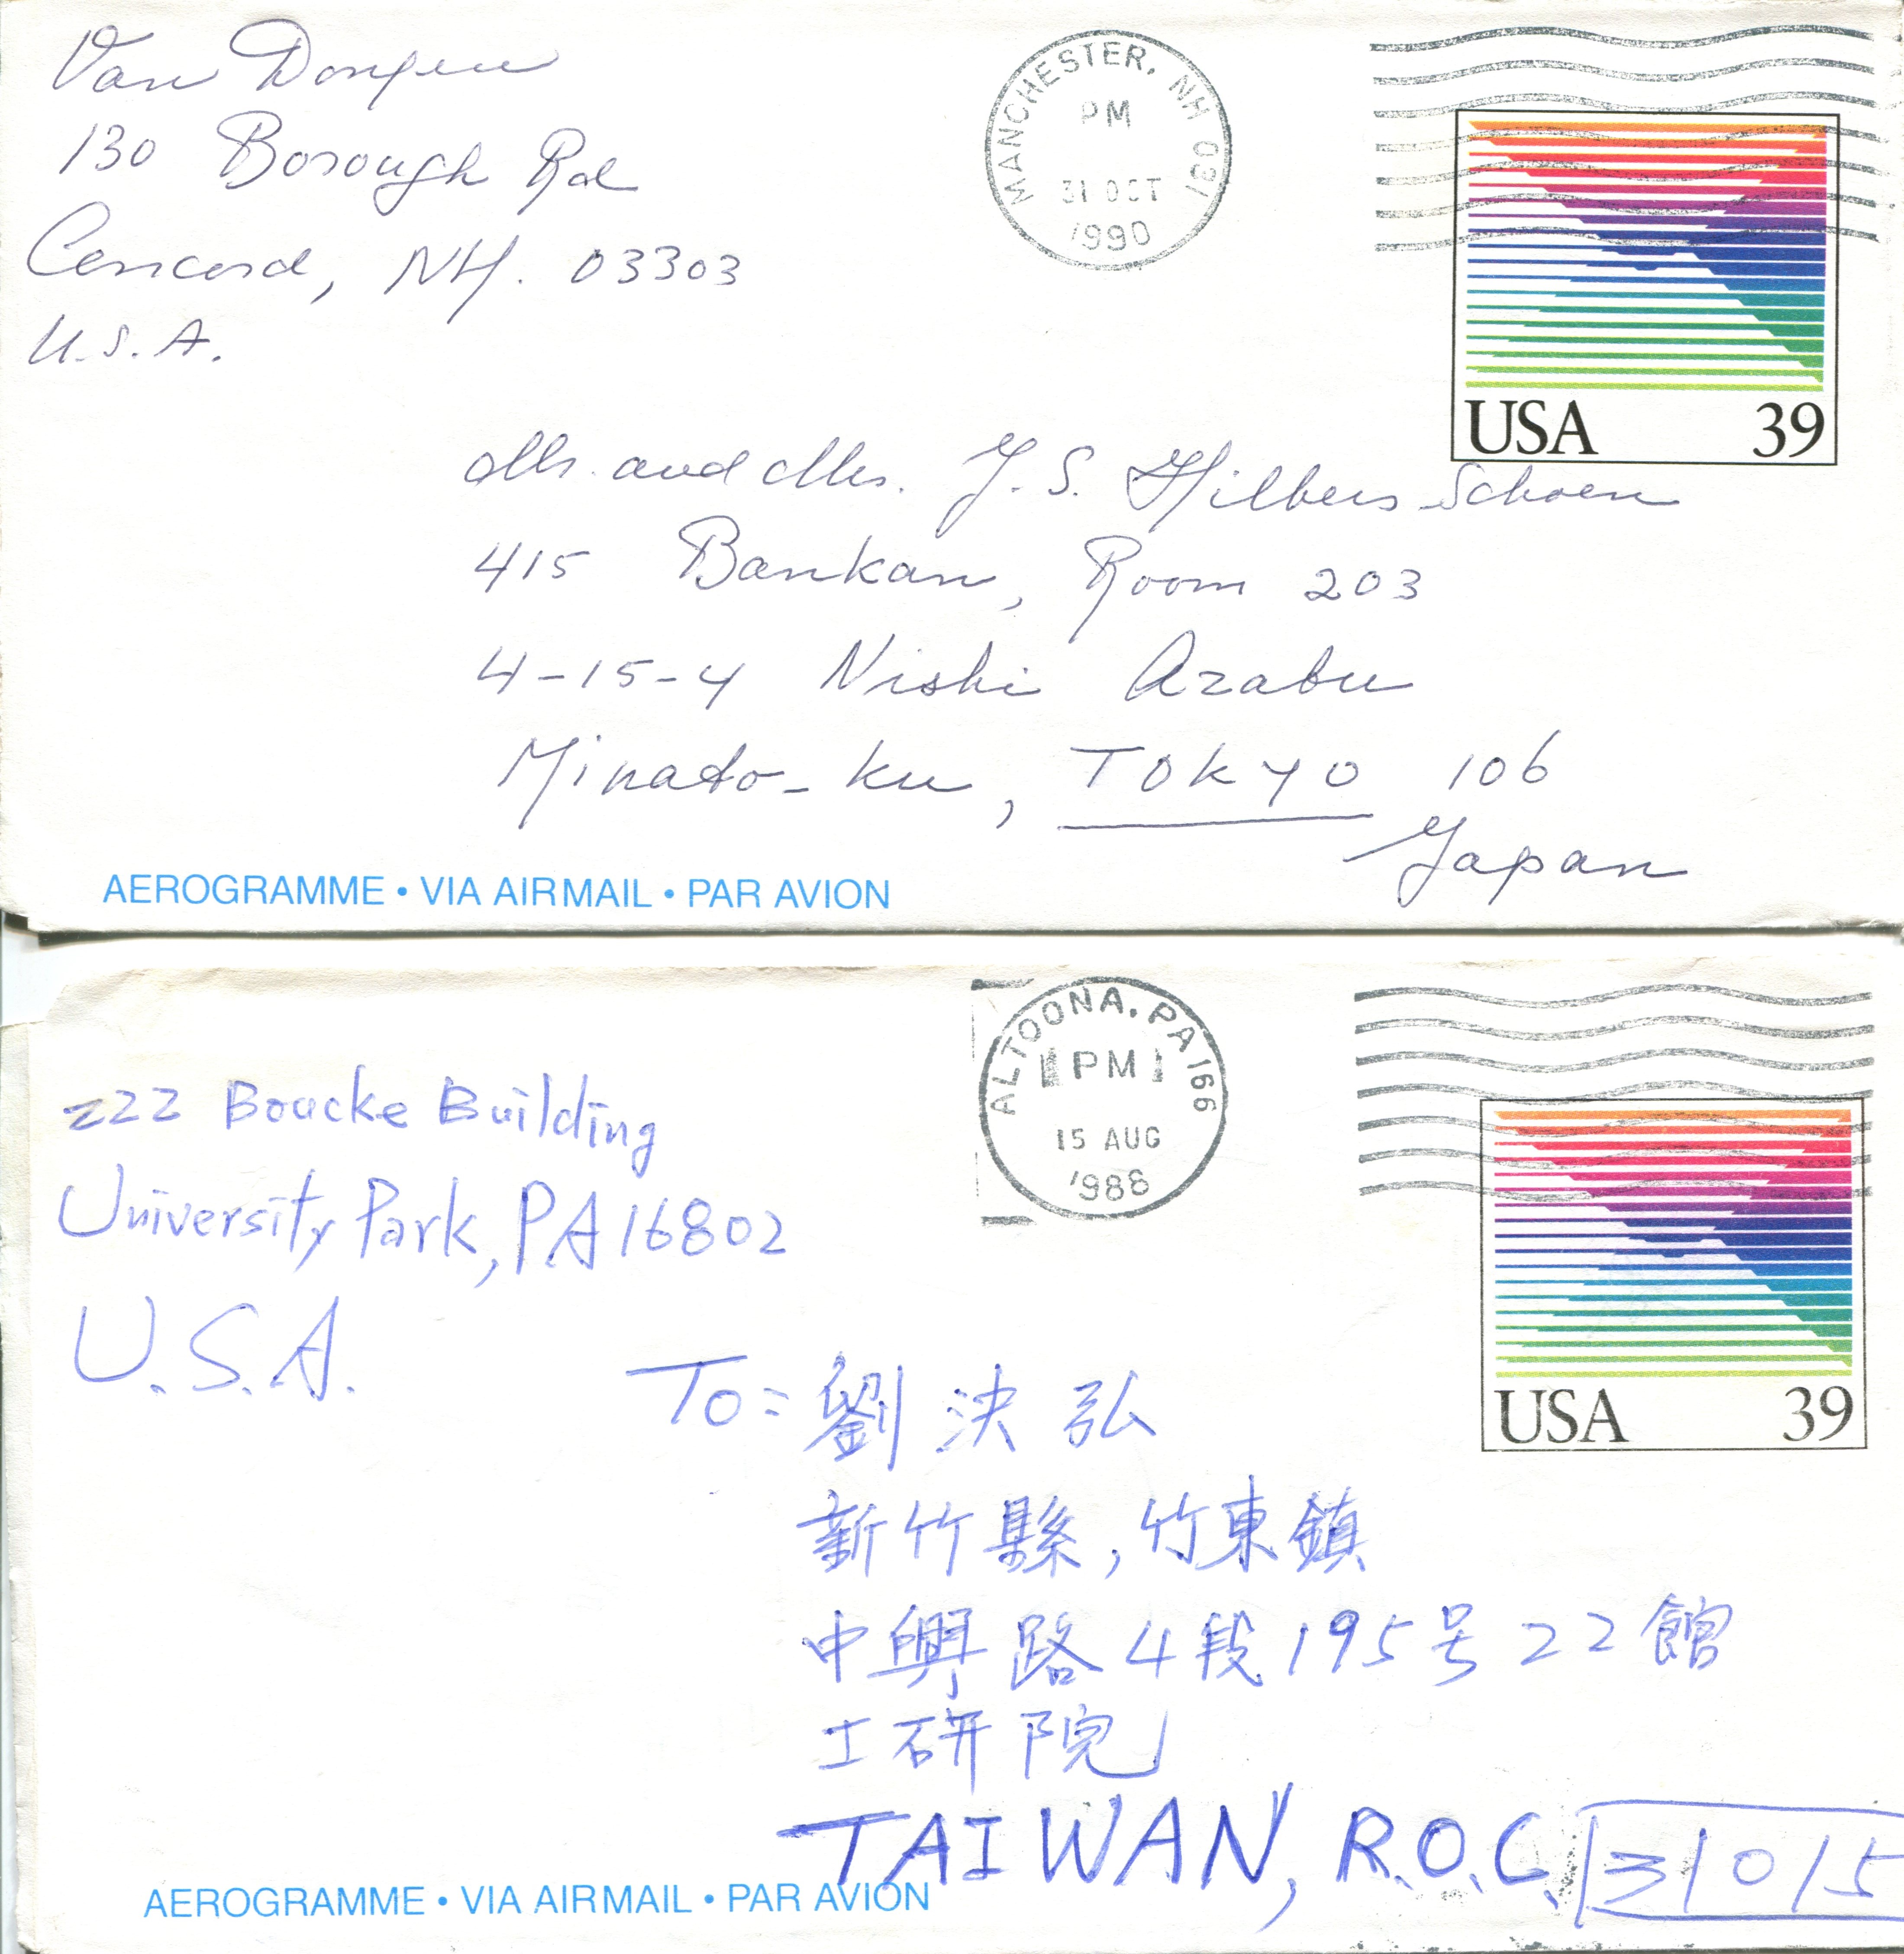 Van Dongen
130 Borough Rd
Concord, NH. 03303
U.S.A.
MANCHESTER, NH 031
PM
31 OCT
1990
USA 39
Mr. and Mrs. J. S. Hilbers Schoen
415 Bankan, Room 203
4-15-4 Nishi Azabu
Minato-ku, TOKYO 106
Japan
AEROGRAMME • VIA AIRMAIL • PAR AVION
222 Boucke Building
University Park, PA 16802
U.S.A.
ALTOONA, PA 166
PM
15 AUG
1988
USA 39
To: 劉決弘
新竹縣,竹東鎮
中興路4段195号22館
工研院
TAIWAN, R.O.C. 31015
AEROGRAMME • VIA AIRMAIL • PAR AVION